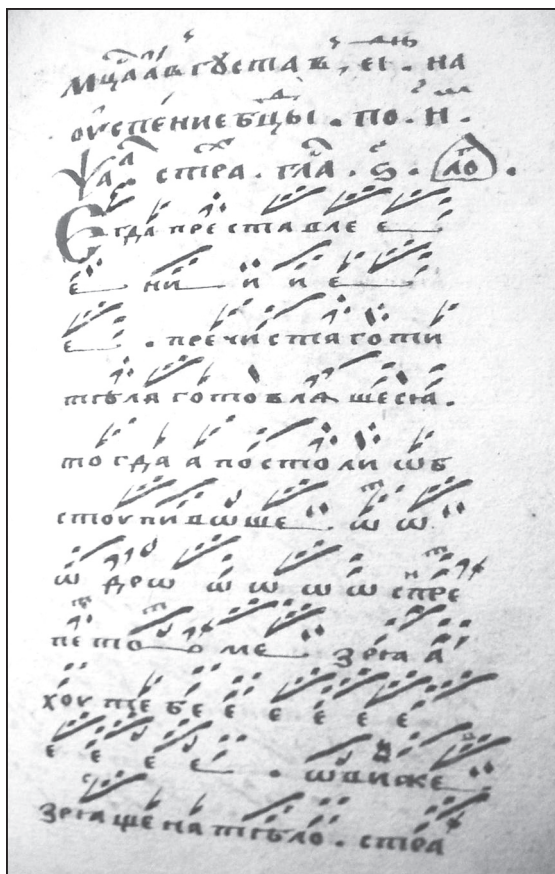 мцⷭ҇а авгꙋста въ, еı . на
оуспение бцы . по . н .
Ꙗ стра . гла . ѕ . ло .
Єгда преставле е
е ни и и е
е . пречистаго ти
тѣла готовлѧшесѧ .
тогда апостоли ѡб
стоупивѡше . ѡ ѡ
ѡ дрѡ ѡ ѡ ѡ ѡ с тре
пето о ме зрꙗ а
хоу тебе е е е е е
е е е е . ѡвиже
зрꙗще на тѣло . стра